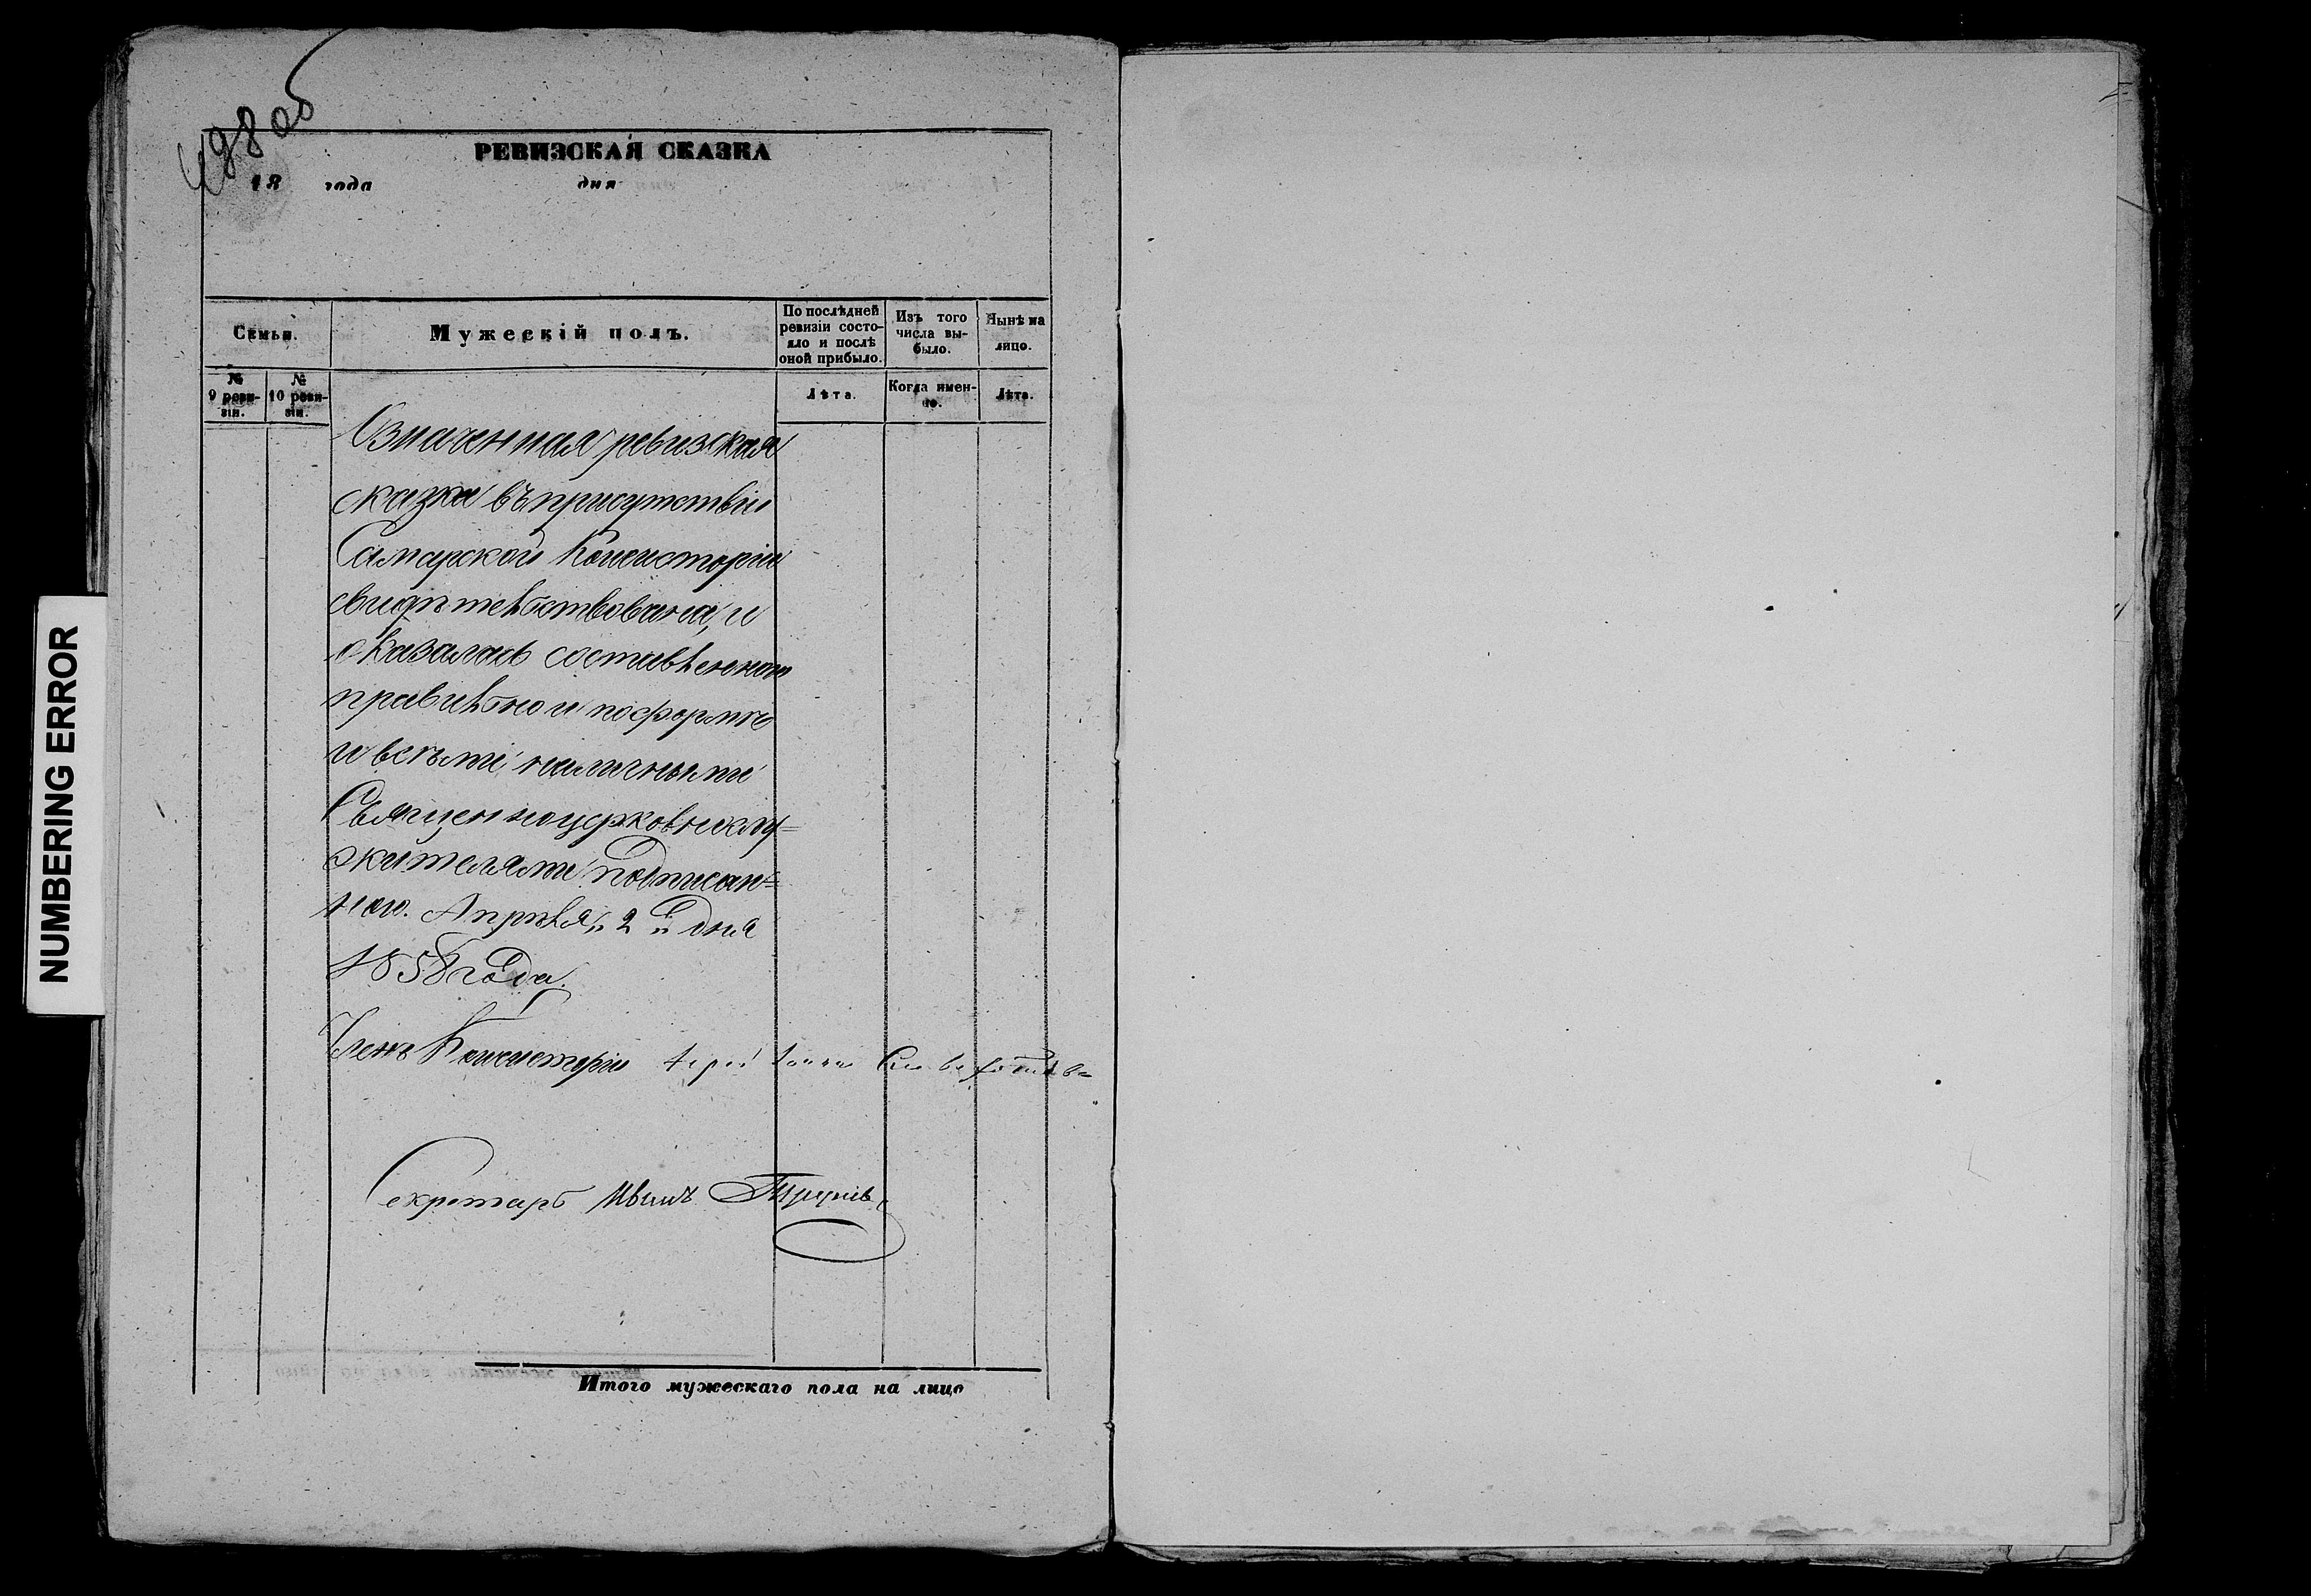 498 об
РЕВИЗСКАЯ СКАЗКА
18 года дня
Семьи.
Мужескій полъ.
По послѣдней ревизіи состояло и послѣ оной прибыло.
Изъ того числа выбыло.
Нынѣ на лицо.
№ 9 ревизіи.
№ 10 ревизіи.
Лѣта.
Когда именно.
Лѣта.
Означенная ревизская
сказка въ присутствіи
Самарской Консисторіи
свидѣтельствована, и
оказалась составленною
правильно и по формѣ
и всѣми наличными
Священноцерковнослу=
жителями подписан=
ною. Апрѣля „2" дня
1858 года.
Членъ Консисторіи Іерей Іоаннъ
Секретарь Иванъ
Итого мужескаго пола на лицо
NUMBERING ERROR